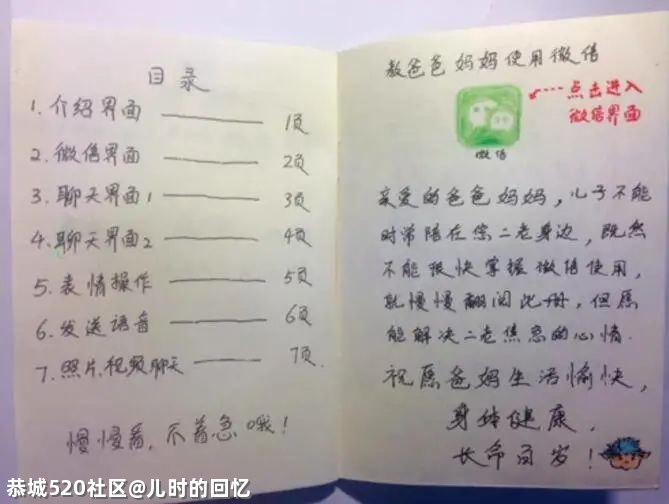 目录
1. 介绍界面 —— 1页
2. 微信界面 —— 2页
3. 聊天界面1 —— 3页
4. 聊天界面2 —— 4页
5. 表情操作 —— 5页
6. 发送语音 —— 6页
7. 照片、视频聊天 —— 7页.
慢慢看,不着急哦!
教爸爸妈妈使用微信
点击进入
微信界面
微信
亲爱的爸爸妈妈,儿子不能
时常陪在您二老身边,既然
不能很快掌握微信使用,
就慢慢翻阅此册,但愿
能解决二老焦急的心情.
祝愿爸妈生活愉快,
身体健康,
长命百岁!
恭城520社区@儿时的回忆